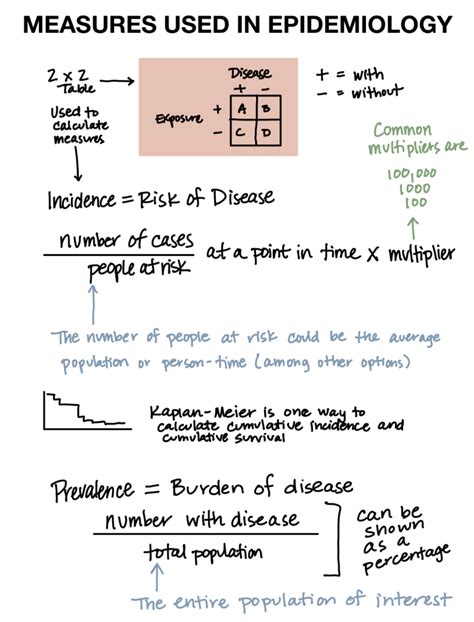 MEASURES USED IN EPIDEMIOLOGY
2 x 2
Table
Used to
calculate
measures
Disease
+ -
Exposure
+ A B
- C D
+ = with
- = without
Common
multipliers are
100,000
1000
100
Incidence = Risk of Disease
number of cases
people at risk
at a point in time x multiplier
The number of people at risk could be the average
population or person-time (among other options)
Kaplan-Meier is one way to
calculate cumulative incidence and
cumulative survival
Prevalence = Burden of disease
number with disease
total population
can be
shown
as a
percentage
The entire population of interest